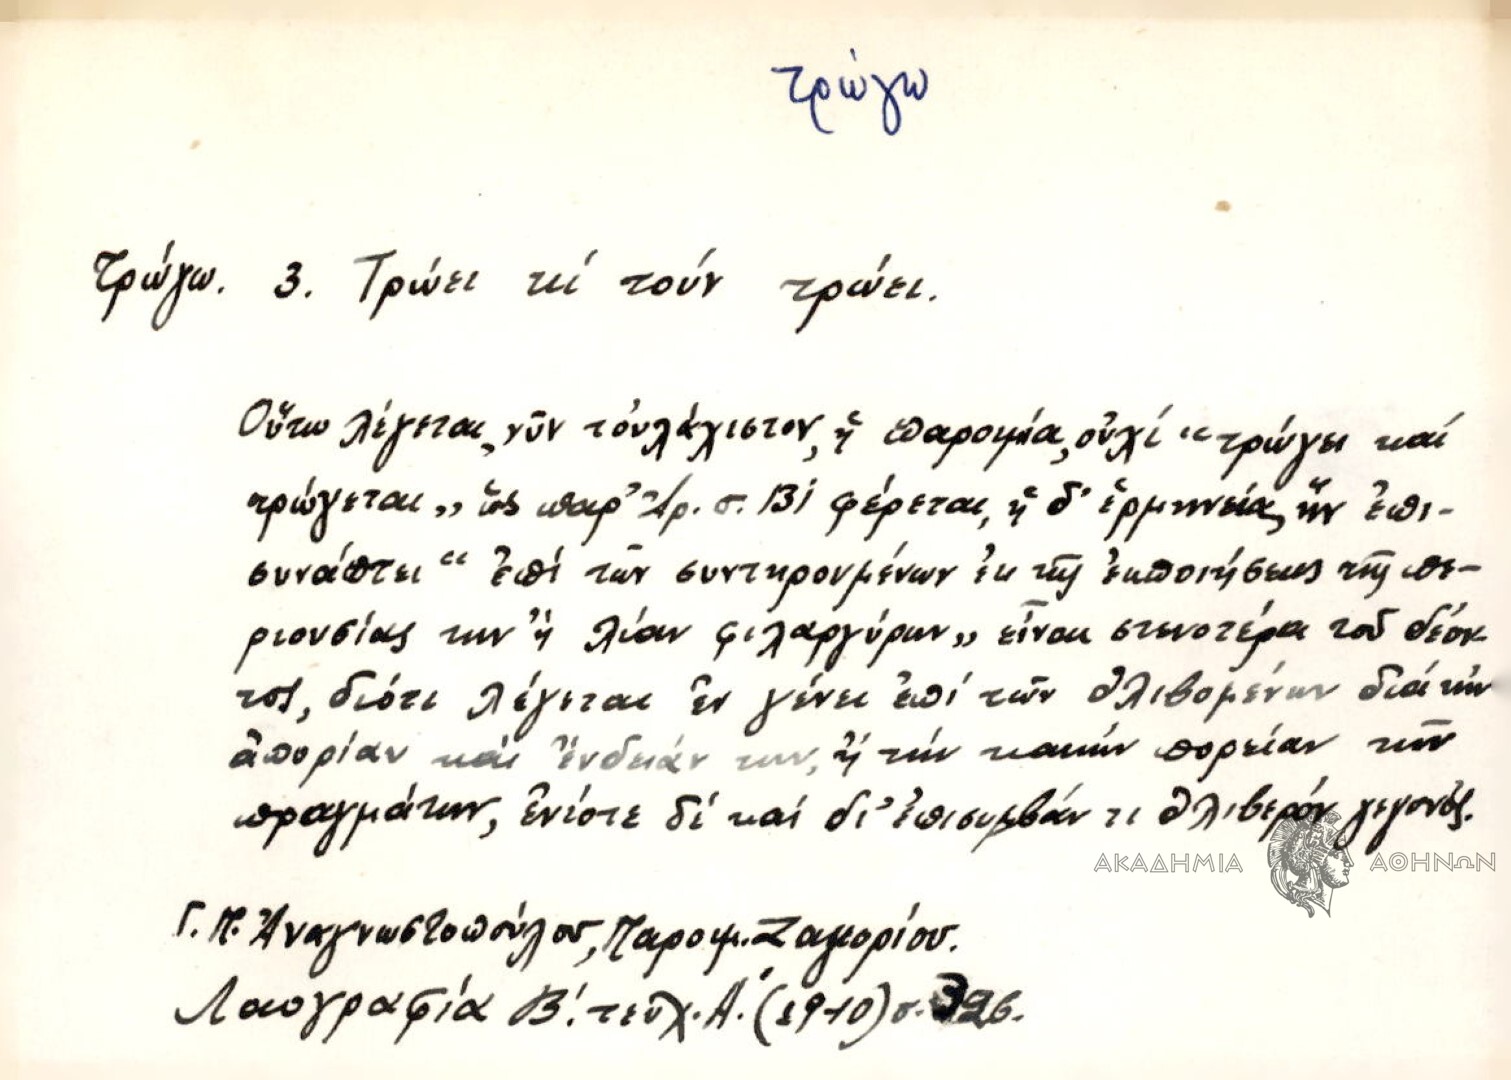 τρώγω
Τρώγω. 3. Τρώει κί τούν τρώει.
Οὕτω λέγεται, νῦν τοὐλάχιστον, ἡ παροιμία, οὐχί "τρώγει καί
τρώγεται„ ὡς παρ' Ἀρ. σ. 131 φέρεται, ἡ δ' ἑρμηνεία, ἥν ἐπι-
συνάπτει "ἐπί τῶν συντηρουμένων ἐκ τῆς ἐκποιήσεως τῆς πε-
ριουσίας των ἤ λίαν φιλαργύρων„ εἶναι στενοτέρα τοῦ δέον-
τος, διότι λέγεται ἐν γένει ἐπί τῶν θλιβομένων διά τήν
ἀπορίαν καί ἔνδειάν των, ἤ τήν κακήν πορείαν τῶν
πραγμάτων, ἐνίοτε δέ καί δι' ἐπισυμβάν τι θλιβερόν γεγονός.
ΑΚΑΔΗΜΙΑ ΑΘΗΝΩΝ
Γ. Π. Ἀναγνωστοπούλου, Παροιμ. Ζαγορίου.
Λαογραφία Β΄. τεῦχ. Α΄. (1910) σ.